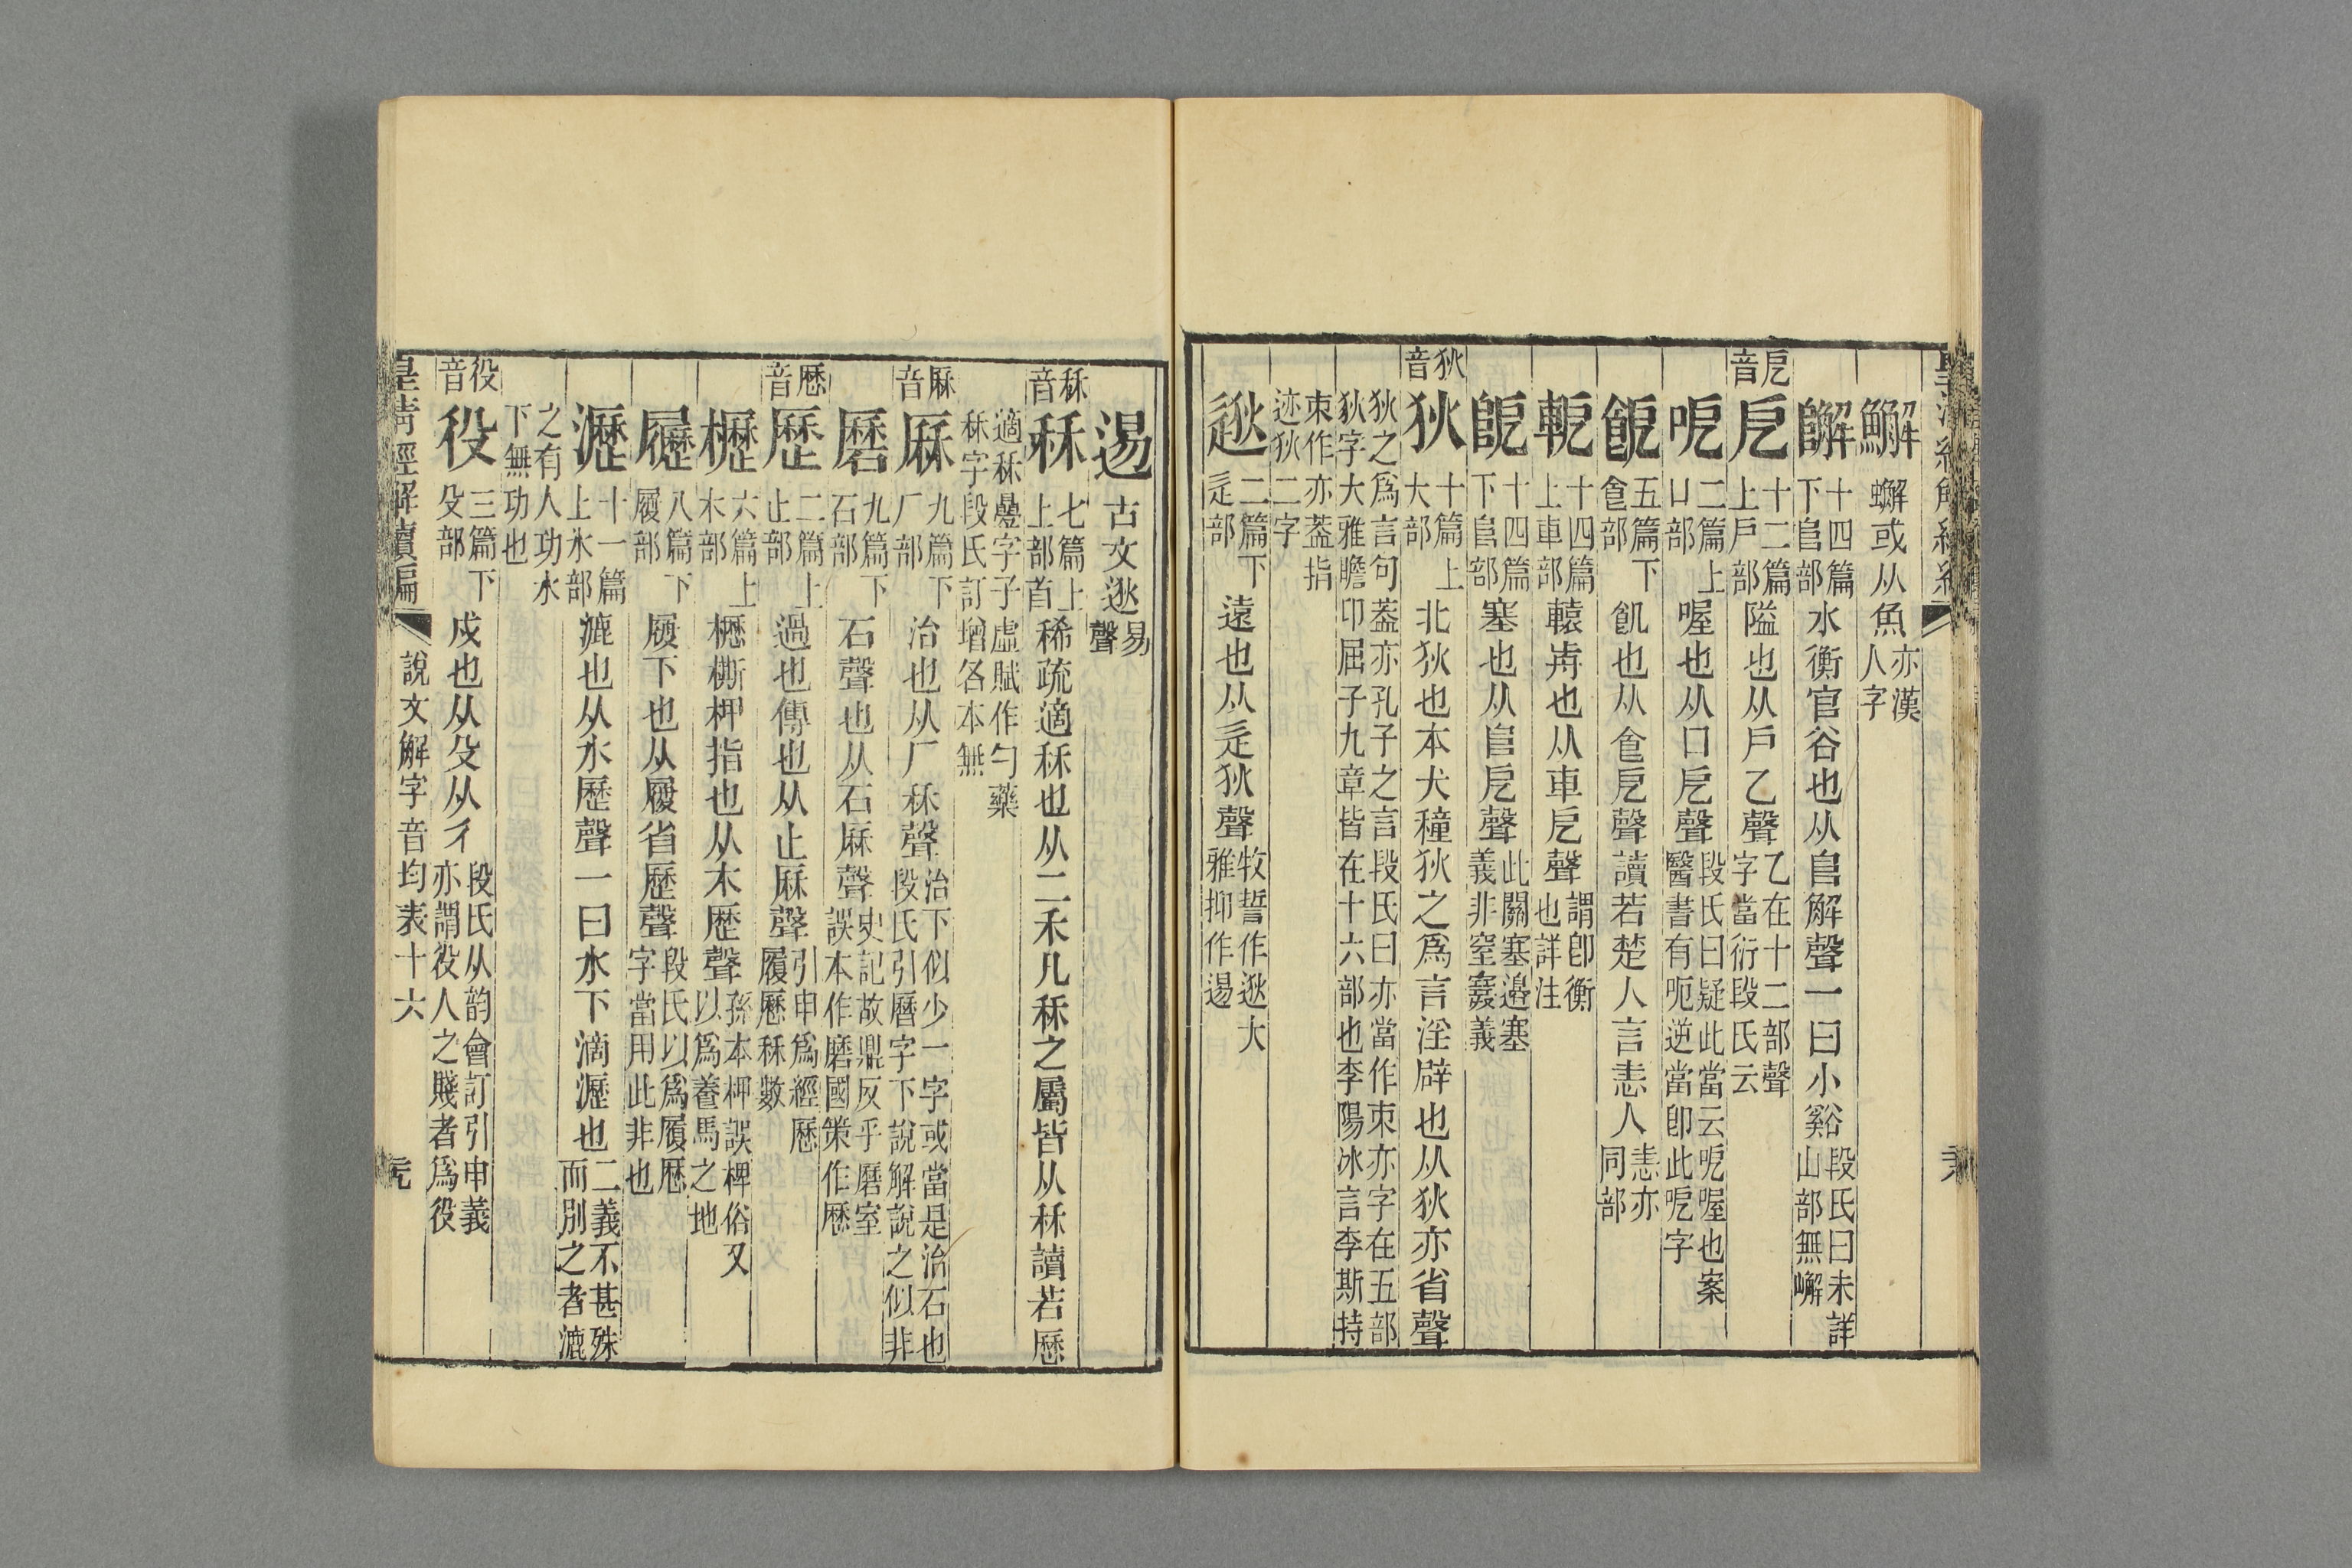 䲒 蠏或从魚亦漢人字
𨼬 十四篇下𨸏部 水衡官谷也从𨸏解聲一曰小谿段氏曰未詳山部無嶰
戹音 戹 十二篇上戶部 隘也从戶乙聲乙在十二部聲字當衍段氏云
呝 二篇上口部 喔也从口戹聲段氏曰疑此當云呝喔也案醫書有呃逆當卽此呝字
䬵 五篇下𠊊部 飢也从𠊊戹聲讀若楚人言恚人恚亦同部
軶 十四篇上車部 轅歬也从車戹聲謂卽衡也詳注
阸 十四篇下𨸏部 塞也从𨸏戹聲此關塞邊塞義非窒䆲義
狄音 狄 十篇上犬部 北狄也本犬穜狄之爲言淫辟也从犾亦省聲
狄之爲言句葢亦孔子之言段氏曰亦當作朿亦字在五部
狄字大雅瞻卬屈子九章皆在十六部也李陽冰言李斯持
朿作亦葢指迹狄二字
逖 二篇下辵部 遠也从辵狄聲牧誓作逖大雅抑作逷
逷 古文逖易聲
秝音 秝 七篇上部首 稀疏適秝也从二禾凡秝之屬皆从秝讀若歷
適秝疊字子虛賦作勻藥
秝字段氏訂增各本無
厤音 厤 九篇下厂部 治也从厂秝聲治下似少一字或當是治石也段氏引曆字下說解說之似非
磿 九篇下石部 石聲也从石厤聲史記故鼎反乎磿室誤本作磨國策作歷
歷音 歷 二篇上止部 過也傳也从止厤聲引申爲經歷履歷秝數
櫪 六篇上木部 櫪㯕柙指也从木歷聲孫本柙誤椑俗又以爲養馬之地
𡳐 八篇下履部 履下也从履省歷聲段氏以爲履歷字當用此非也
瀝 十一篇上水部 漉也从水歷聲一曰水下滴瀝也二義不甚殊而別之者漉
之有人功水下無功也
役音 役 三篇下殳部 戍也从殳从彳段氏从韵會訂引申義亦謂役人之賤者爲役
皇清經解續編 說文解字音均表十六